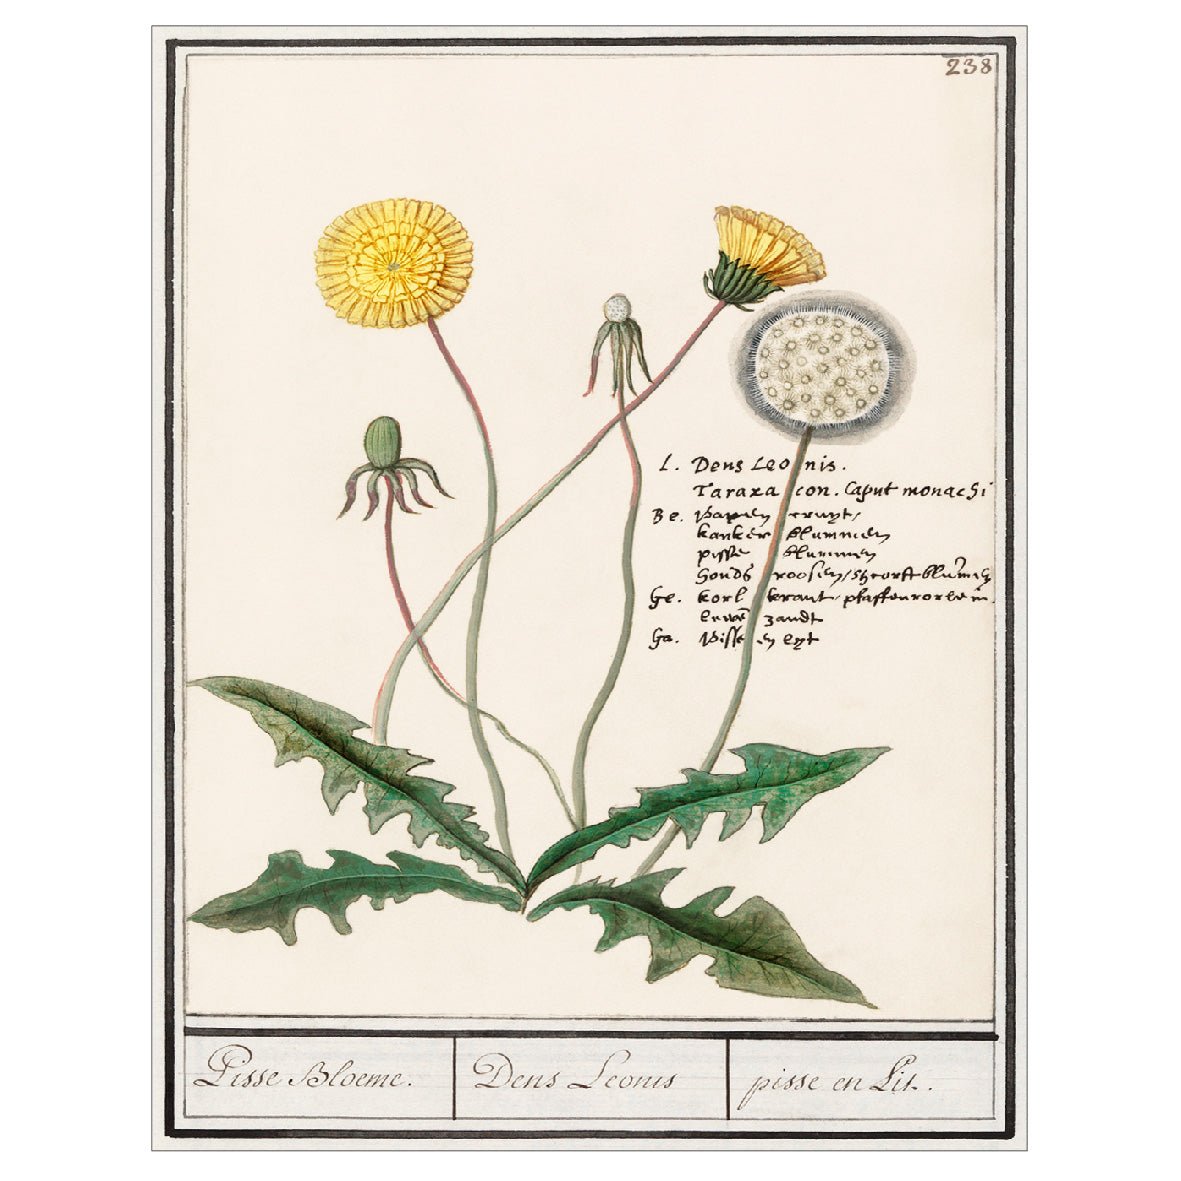 238
L. Dens Leonis.
Taraxacon. Caput monachi
Be. Papen cruyt,
kanker blummen
pisse blummen
honds roosen, scorft blum̃en
He. korl kraut, pfaffenrorlein.
lewen zandt
Ga. Pisse en lyt
Pisse Bloeme.
Dens Leonis
pisse en Lit.